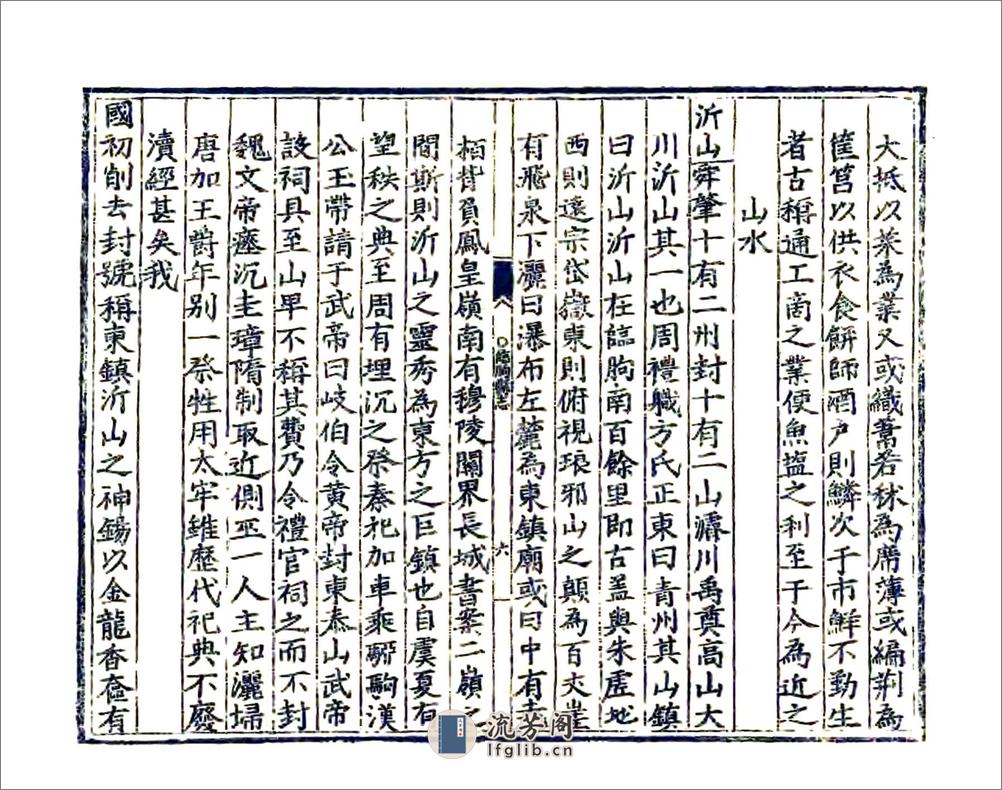 大抵以菜為業又或織蒿若秫為席薄或編荆為
筐筥以供衣食餅師酒户則鱗次于市鮮不勤生
者古稱通工商之業便魚塩之利至于今為近之
山水
沂山舜肇十有二州封十有二山濬川禹奠高山大
川沂山其一也周禮職方氏正東曰青州其山鎮
曰沂山沂山在臨朐南百餘里即古盖與朱虚地
西則遠宗岱嶽東則俯視琅邪山之顛為百丈崖
有飛泉下灑曰瀑布左麓為東鎮廟或曰中有
栢背負鳳皇嶺南有穆陵關界長城書案二嶺之
間斯則沂山之靈秀為東方之巨鎮也自虞夏有
望秩之典至周有埋沉之祭秦祀加車乘駵駒漢
公玉帶請于武帝曰岐伯令黄帝封東泰山武帝
設祠具至山卑不稱其費乃令禮官祠之而不封
魏文帝瘞沉圭璋隋制取近側巫一人主知灑埽
唐加王爵年别一祭牲用太牢雖歷代祀典不廢
瀆經甚矣我
國初削去封號稱東鎮沂山之神錫以金龍香盒有
臨朐縣志
六
流芳阁
lfglib.cn